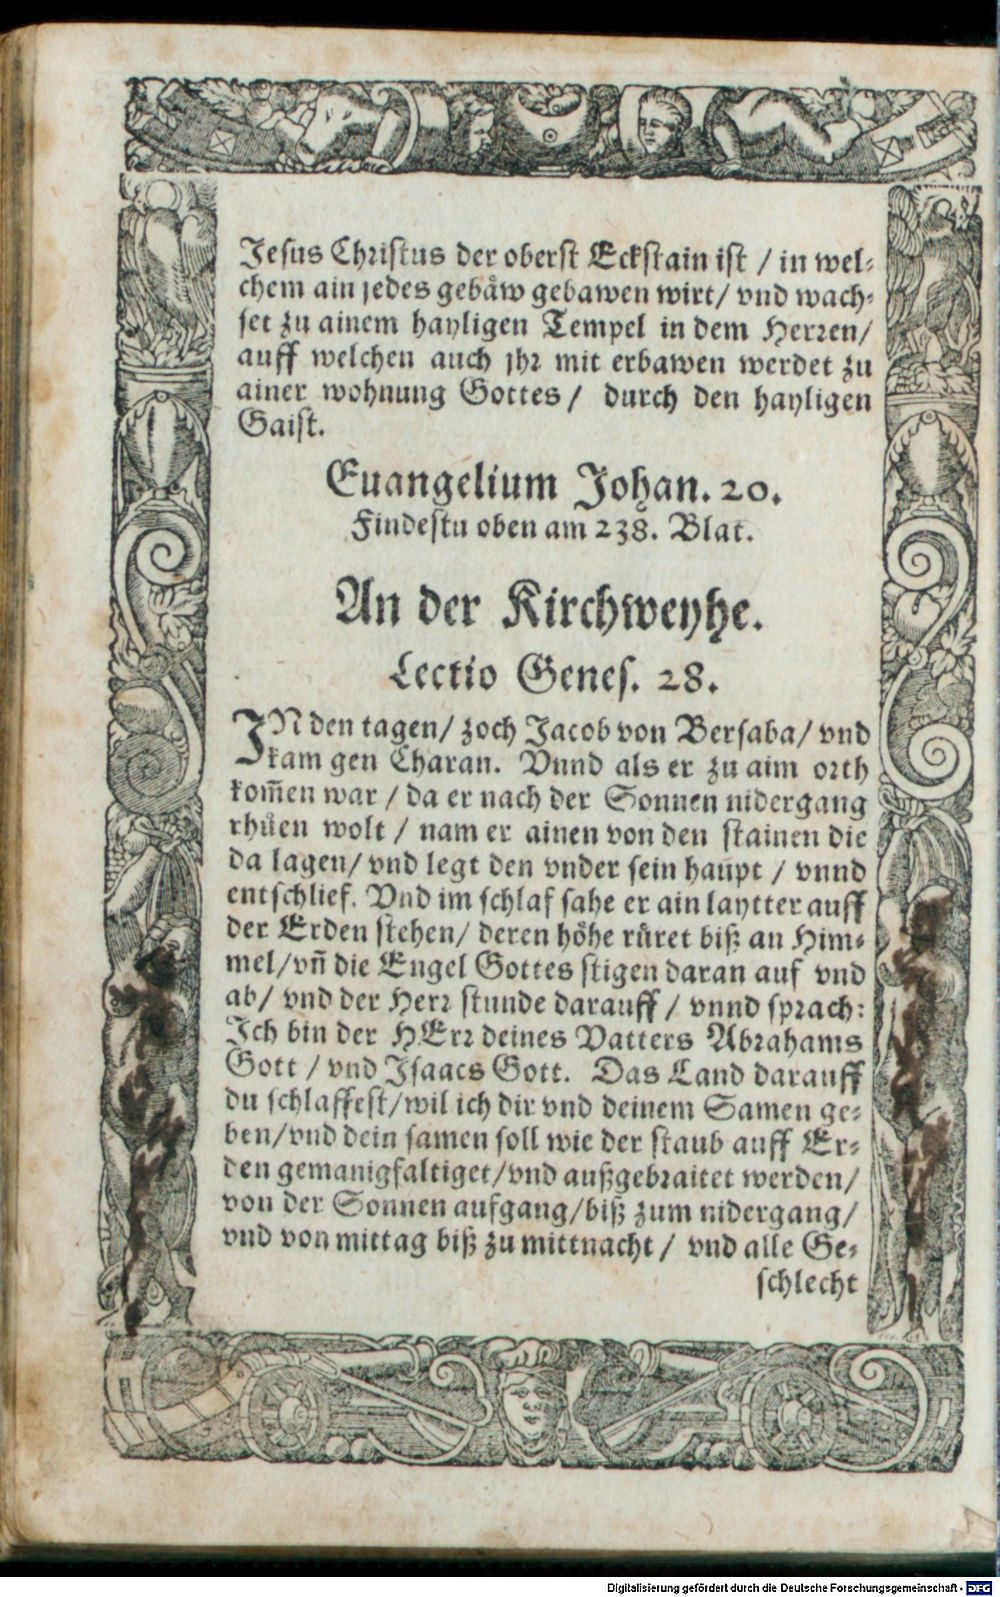 Jesus Christus der oberst Eckstain ist / in wel-
chem ain jedes gebåw gebawen wirt/ vnd wach-
set zu ainem hayligen Tempel in dem Herren/
auff welchen auch jhr mit erbawen werdet zu
ainer wohnung Gottes / durch den hayligen
Gaist.
Euangelium Johan. 20.
Findestu oben am 238. Blat.
An der Kirchweyhe.
Lectio Genes. 28.
IN den tagen/ zoch Jacob von Bersaba/ vnd
kam gen Charan. Vnnd als er zu aim orth
kom̃en war / da er nach der Sonnen nidergang
rhůen wolt / nam er ainen von den stainen die
da lagen/ vnd legt den vnder sein haupt / vnnd
entschlief. Vnd im schlaf sahe er ain laytter auff
der Erden stehen/ deren höhe růret biß an Him-
mel/vñ die Engel Gottes stigen daran auf vnd
ab/ vnd der Herr stunde darauff / vnnd sprach:
Ich bin der HErr deines Vatters Abrahams
Gott / vnd Isaacs Gott. Das Land darauff
du schlaffest/wil ich dir vnd deinem Samen ge-
ben/vnd dein samen soll wie der staub auff Er-
den gemanigfaltiget/vnd außgebraitet werden/
von der Sonnen aufgang/biß zum nidergang/
vnd von mittag biß zu mittnacht / vnd alle Ge-
schlecht
Digitalisierung gefördert durch die Deutsche Forschungsgemeinschaft - DFG